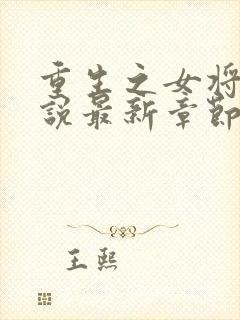 重生之女将
说最新章节
王熙